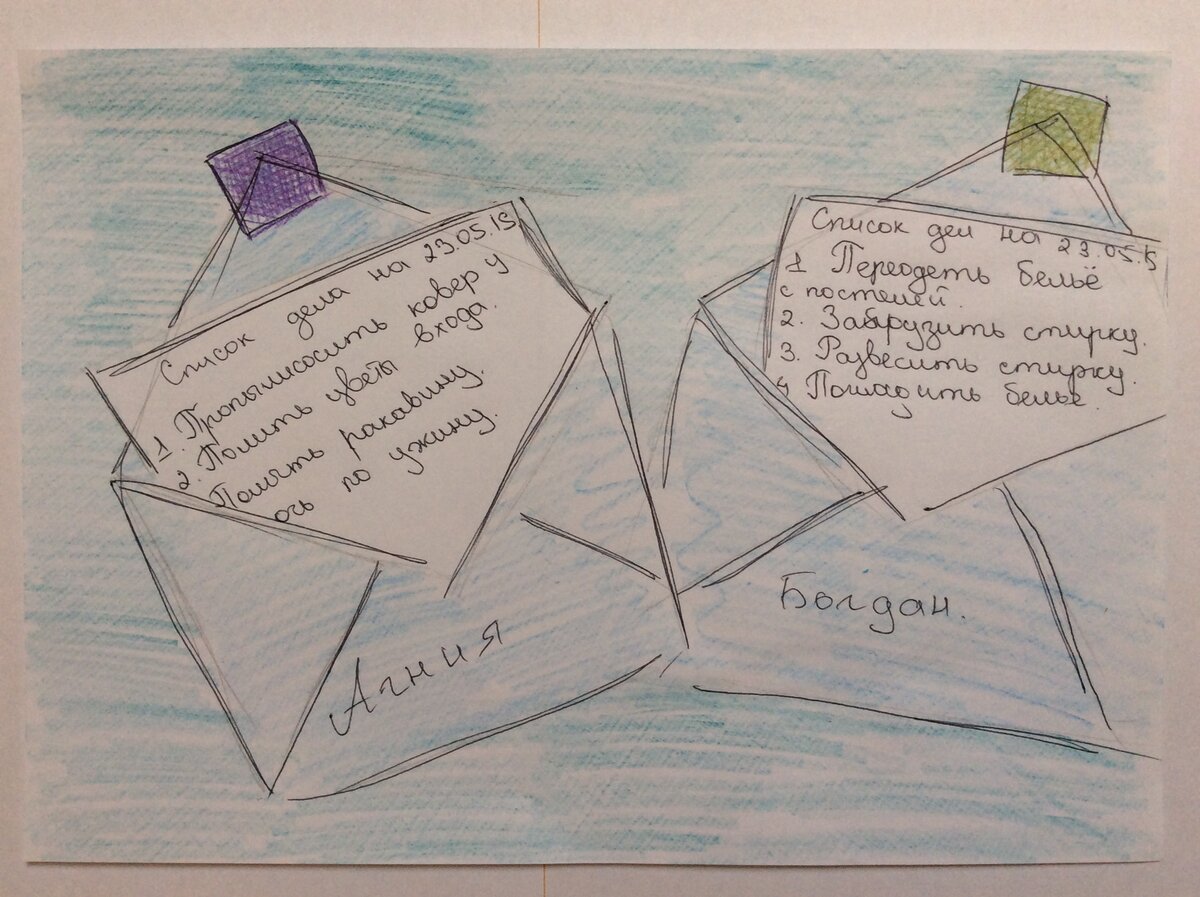 Список дела на 23.05.15.
1. Пропылисосить ковер у
2. Полить цветы входа.
Помыть ракавину.
по ужину.
Агния
Список дел на 23.05.15
1 Переодеть бельё
с постелей.
2. Забгрузить стирку.
3. Развесить стирку.
4 Погладить бельё.
Богдан.